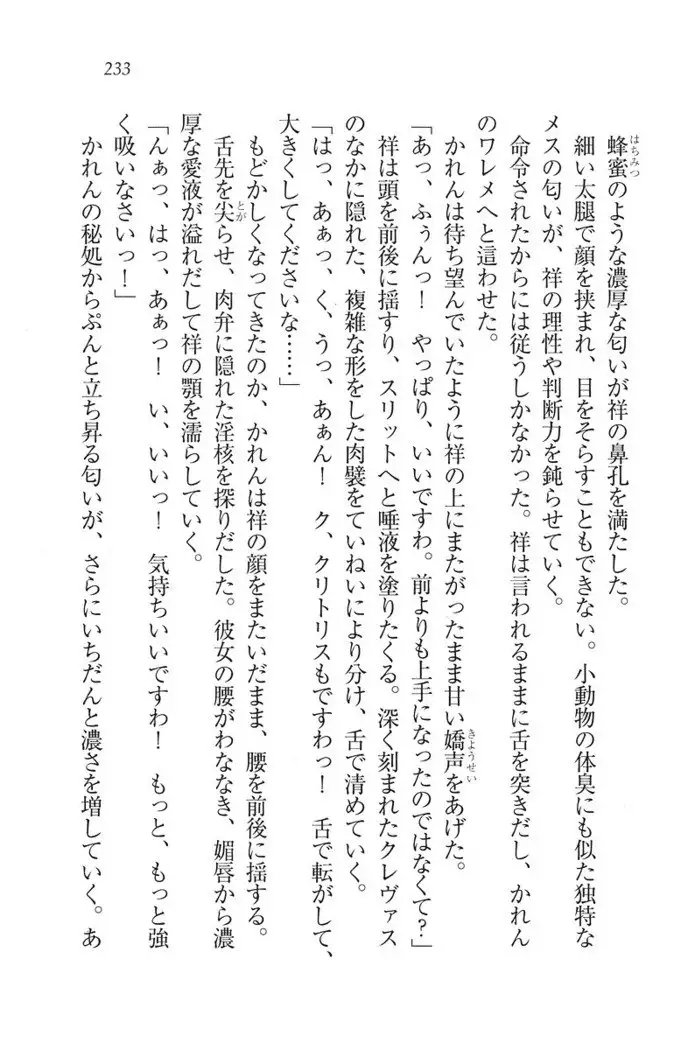 233
蜂蜜のような濃厚な匂いが祥の鼻孔を満たした。
はちみつ
細い太腿で顔を挟まれ、目をそらすこともできない。小動物の体臭にも似た独特な
メスの匂いが、祥の理性や判断力を鈍らせていく。
命令されたからには従うしかなかった。祥は言われるままに舌を突きだし、かれん
のワレメへと這わせた。
かれんは待ち望んでいたように祥の上にまたがったまま甘い嬌声をあげた。
きょうせい
「あっ、ふぅんっ！　やっぱり、いいですわ。前よりも上手になったのではなくて？」
祥は頭を前後に揺すり、スリットへと唾液を塗りたくる。深く刻まれたクレヴァス
のなかに隠れた、複雑な形をした肉襞をていねいにより分け、舌で清めていく。
「はっ、あぁっ、く、うっ、あぁん！　ク、クリトリスもですわっ！　舌で転がして、
大きくしてくださいな……」
もどかしくなってきたのか、かれんは祥の顔をまたいだまま、腰を前後に揺する。
舌先を尖らせ、肉弁に隠れた淫核を探りだした。彼女の腰がわななき、媚唇から濃
とが
厚な愛液が溢れだして祥の顎を濡らしていく。
「んぁっ、はっ、あぁっ！　い、いいっ！　気持ちいいですわ！　もっと、もっと強
く吸いなさいっ！」
かれんの秘処からぷんと立ち昇る匂いが、さらにいちだんと濃さを増していく。あ